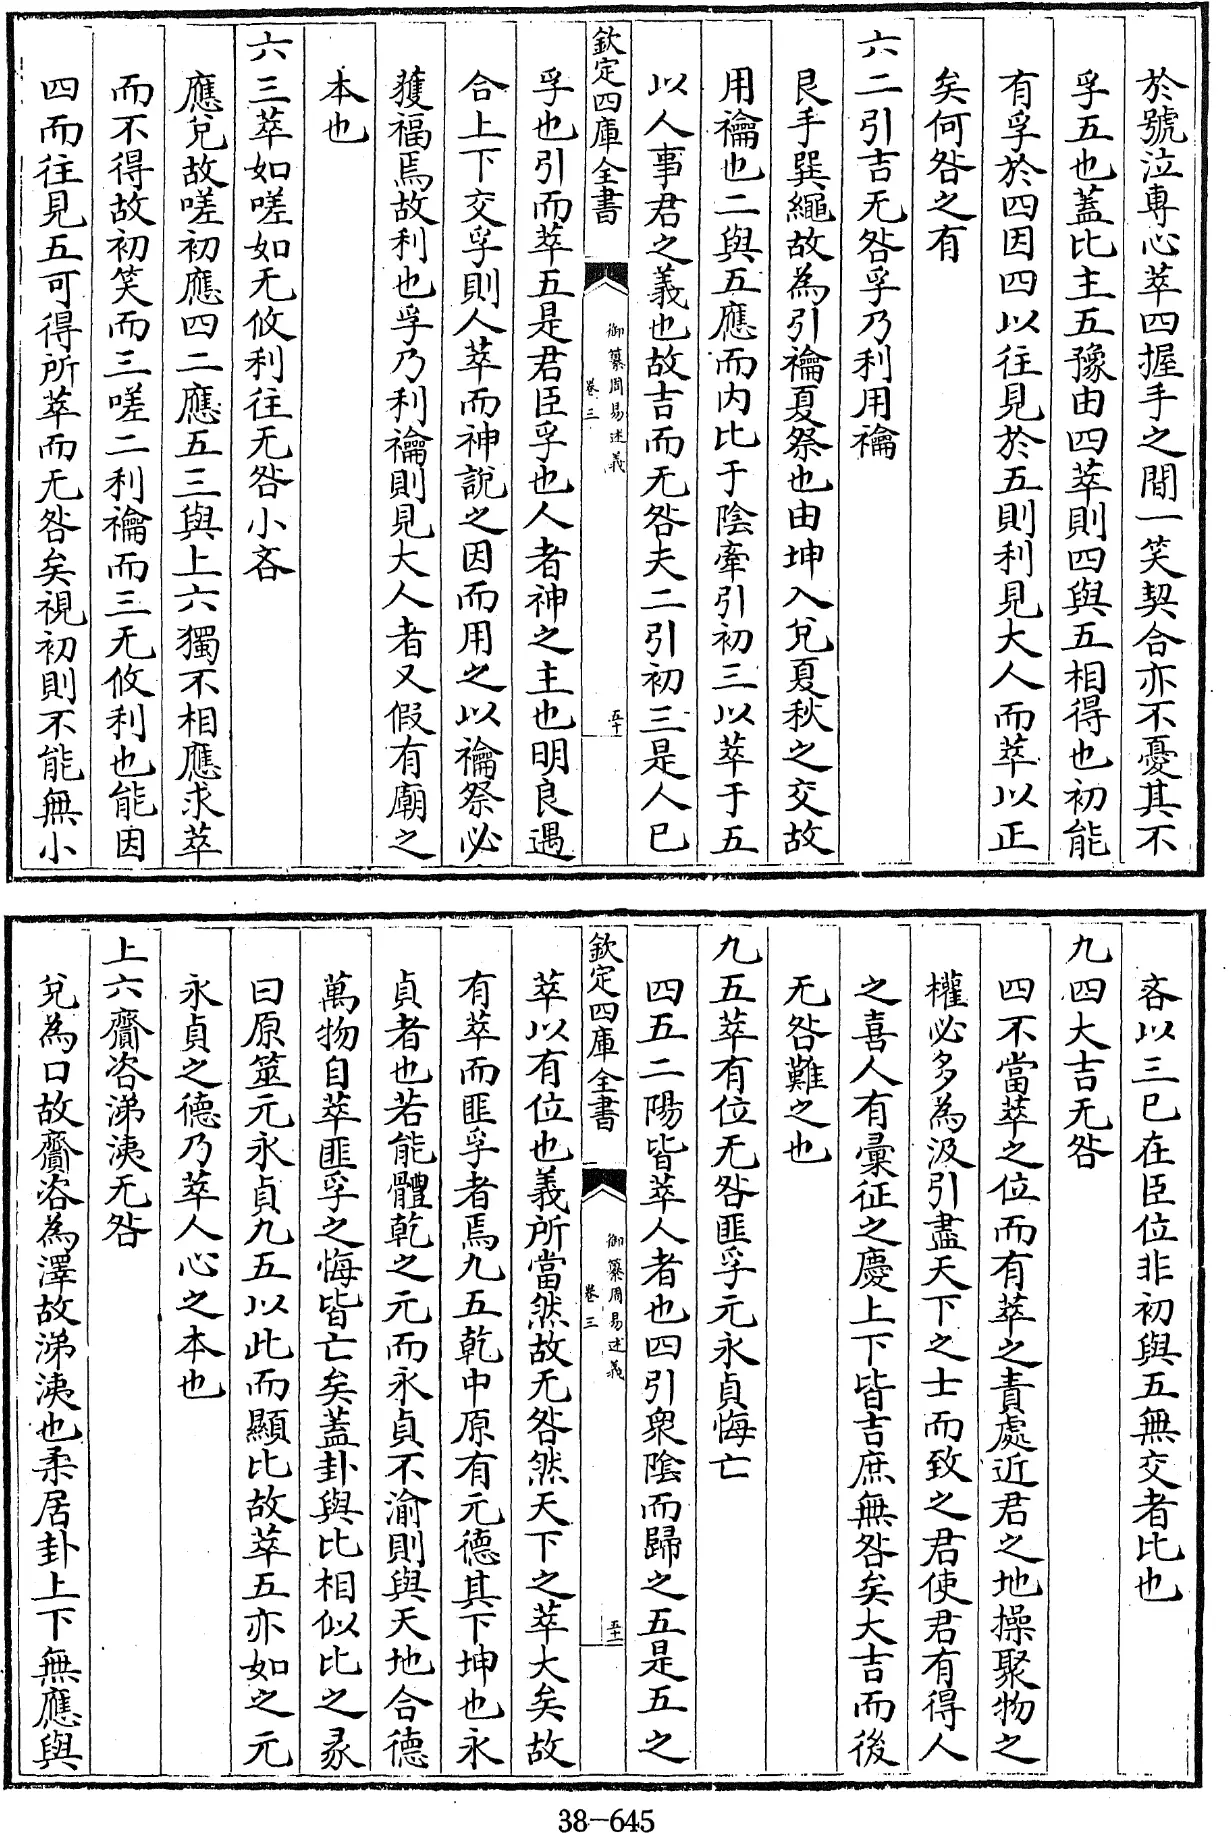 於號泣專心萃四握手之間一笑契合亦不憂其不
孚五也蓋比主五豫由四萃則四與五相得也初能
有孚於四因四以往見於五則利見大人而萃以正
矣何咎之有
六二引吉无咎孚乃利用禴
艮手巽繩故為引禴夏祭也由坤入兌夏秋之交故
用禴也二與五應而内比于陰牽引初三以萃于五
以人事君之義也故吉而无咎夫二引初三是人已
欽定四庫全書
御纂周易述義
卷三
五十
孚也引而萃五是君臣孚也人者神之主也明良遇
合上下交孚則人萃而神說之因而用之以禴祭必
獲福焉故利也孚乃利禴則見大人者又假有廟之
本也
六三萃如嗟如无攸利往无咎小吝
應兌故嗟初應四二應五三與上六獨不相應求萃
而不得故初笑而三嗟二利禴而三无攸利也能因
四而往見五可得所萃而无咎矣視初則不能無小
吝以三已在臣位非初與五無交者比也
九四大吉无咎
四不當萃之位而有萃之責處近君之地操聚物之
權必多為汲引盡天下之士而致之君使君有得人
之喜人有彙征之慶上下皆吉庶無咎矣大吉而後
无咎難之也
九五萃有位无咎匪孚元永貞悔亡
四五二陽皆萃人者也四引衆陰而歸之五是五之
欽定四庫全書
御纂周易述義
卷三
五十一
萃以有位也義所當然故无咎然天下之萃大矣故
有萃而匪孚者焉九五乾中原有元德其下坤也永
貞者也若能體乾之元而永貞不渝則與天地合德
萬物自萃匪孚之悔皆亡矣蓋卦與比相似比之彖
曰原筮元永貞九五以此而顯比故萃五亦如之元
永貞之德乃萃人心之本也
上六齎咨涕洟无咎
兌為口故齎咨為澤故涕洟也柔居卦上下無應與
38-645